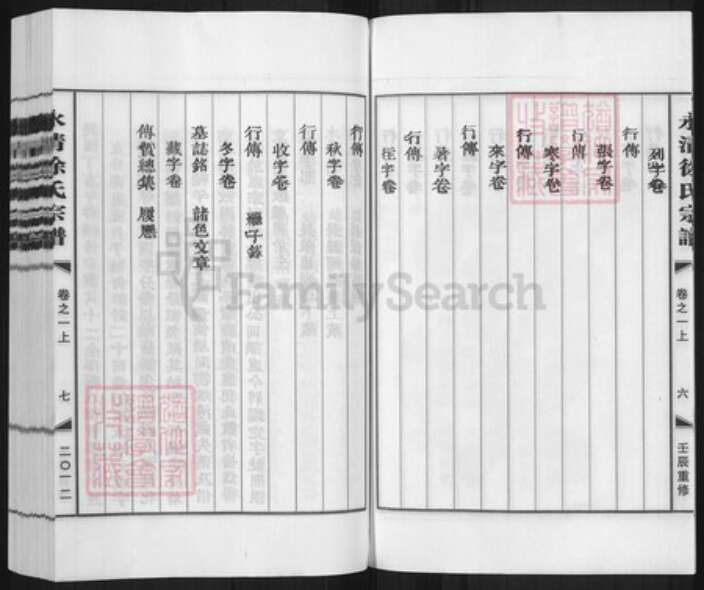 列字卷
行傳
張字卷
行傳
寒字卷
行傳
來字卷
行傳
暑字卷
行傳
往字卷
行傳
秋字卷
行傳
收字卷
行傳
冬字卷
墓誌銘 諸色文章
藏字卷
傳贊總集 履歷
永清徐氏宗譜
卷之一上
六
壬辰重修
永清徐氏宗譜
卷之一上
七
二〇一二
FamilySearch